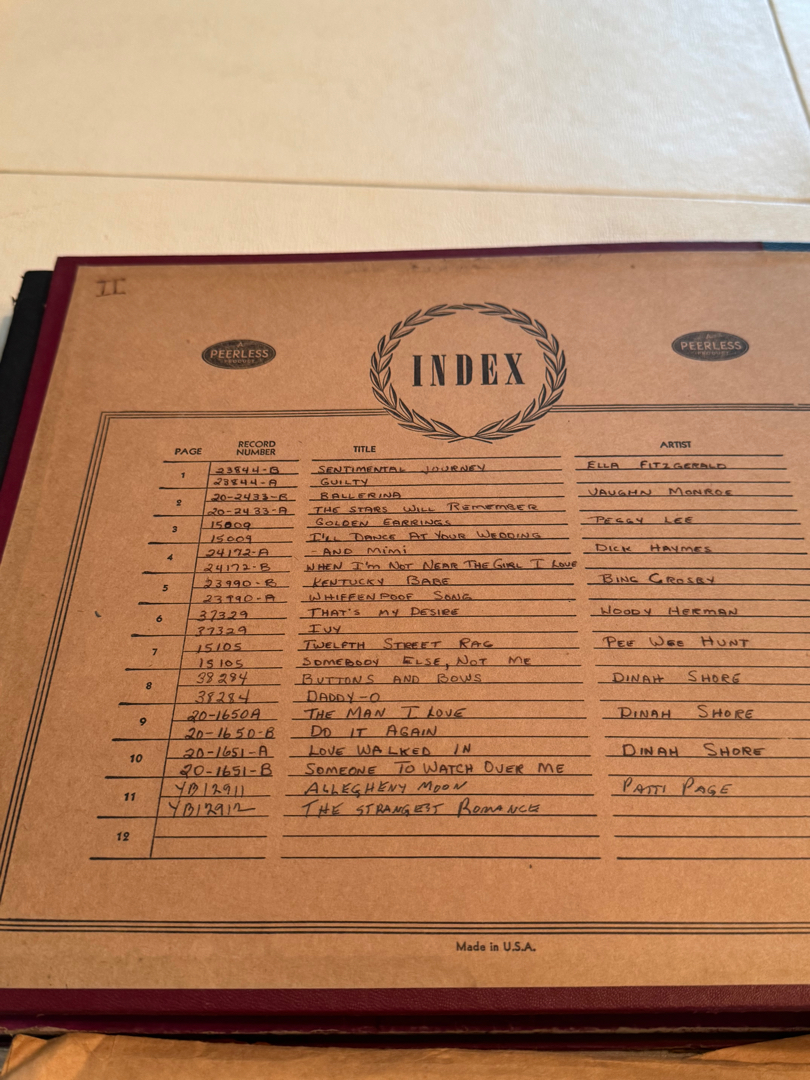 II
A PEERLESS PRODUCT
INDEX
A PEERLESS PRODUCT
PAGE RECORD NUMBER TITLE ARTIST
1 23844-B SENTIMENTAL JOURNEY ELLA FITZGERALD
23844-A GUILTY
2 20-2433-B BALLERINA VAUGHN MONROE
20-2433-A THE STARS WILL REMEMBER
3 15009 GOLDEN EARRINGS PEGGY LEE
15009 I'LL DANCE AT YOUR WEDDING
4 24172-A -AND MIMI DICK HAYMES
24172-B WHEN I'M NOT NEAR THE GIRL I LOVE
5 23990-B KENTUCKY BABE BING CROSBY
23990-A WHIFFENPOOF SONG
6 37329 THAT'S MY DESIRE WOODY HERMAN
37329 IVY
7 15105 TWELFTH STREET RAG PEE WEE HUNT
15105 SOMEBODY ELSE, NOT ME
8 38284 BUTTONS AND BOWS DINAH SHORE
38284 DADDY-O
9 20-1650A THE MAN I LOVE DINAH SHORE
20-1650-B DO IT AGAIN
10 20-1651-A LOVE WALKED IN DINAH SHORE
20-1651-B SOMEONE TO WATCH OVER ME
11 YB12911 ALLEGHENY MOON PATTI PAGE
YB12912 THE STRANGEST ROMANCE
12
Made in U.S.A.